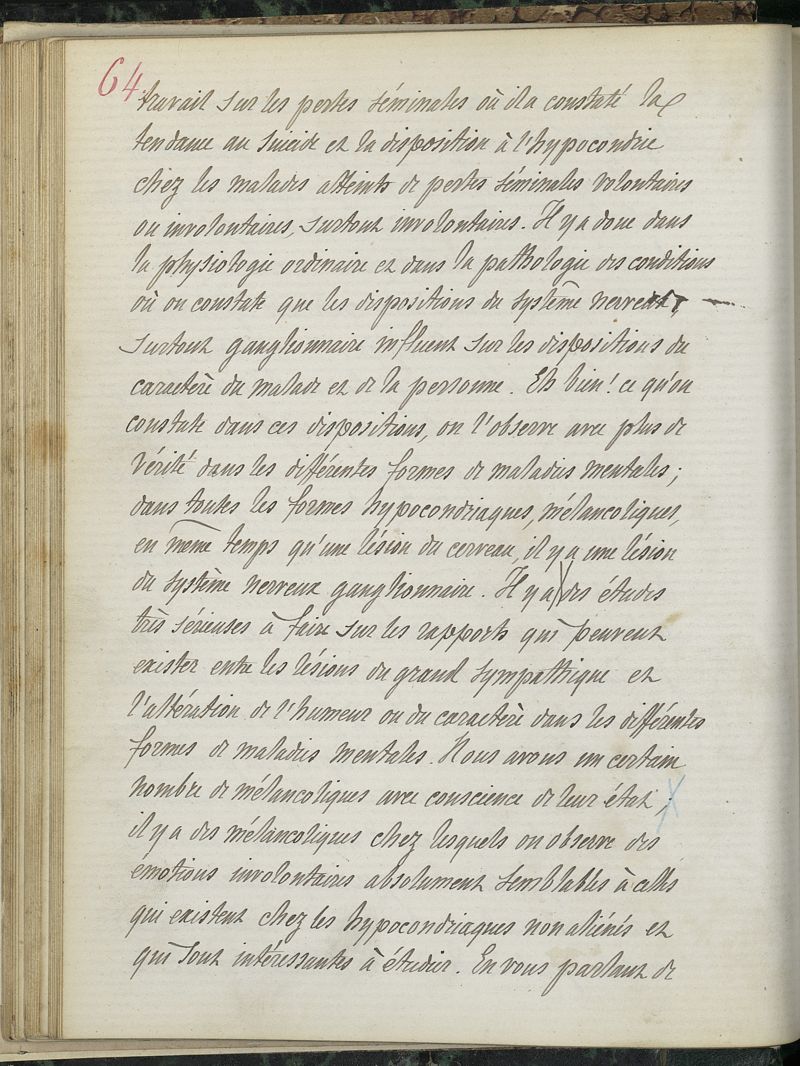 64
travail sur les pertes séminales où il a constaté la
tendance au suicide et la disposition à l'hypocondrie
chez les malades atteints de pertes séminales volontaires
ou involontaires, surtout involontaires. Il y a donc dans
la physiologie ordinaire et dans la pathologie des conditions
où on constate que les dispositions du système nerveux,
surtout ganglionnaire influent sur les dispositions du
caractère du malade et de la personne. Eh bien! ce qu'on
constate dans ces dispositions, on l'observe avec plus de
vérité dans les différentes formes de maladies mentales;
dans toutes les formes hypocondriaques, mélancoliques,
en même temps qu'une lésion du cerveau, il y a une lésion
du système nerveux ganglionnaire. Il y a des études
très sérieuses à faire sur les rapports qui peuvent
exister entre les lésions du grand sympathique et
l'altération de l'humeur ou du caractère dans les différentes
formes de maladies mentales. Nous avons un certain
nombre de mélancoliques avec conscience de leur état;
il y a des mélancoliques chez lesquels on observe des
émotions involontaires absolument semblables à celles
qui existent chez les hypocondriaques non aliénés et
qui sont intéressantes à étudier. En vous parlant de